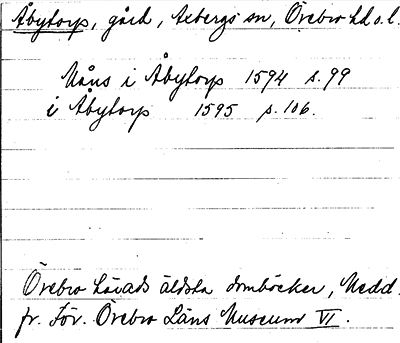 Åbytorp, gård, Axbergs sn, Örebro hd o. l.
Måns i Åbytorp 1594 s. 99
i Åbytorp 1595 s. 106.
Örebro härads äldsta domböcker, Medd.
fr. För. Örebro Läns Museum VI.